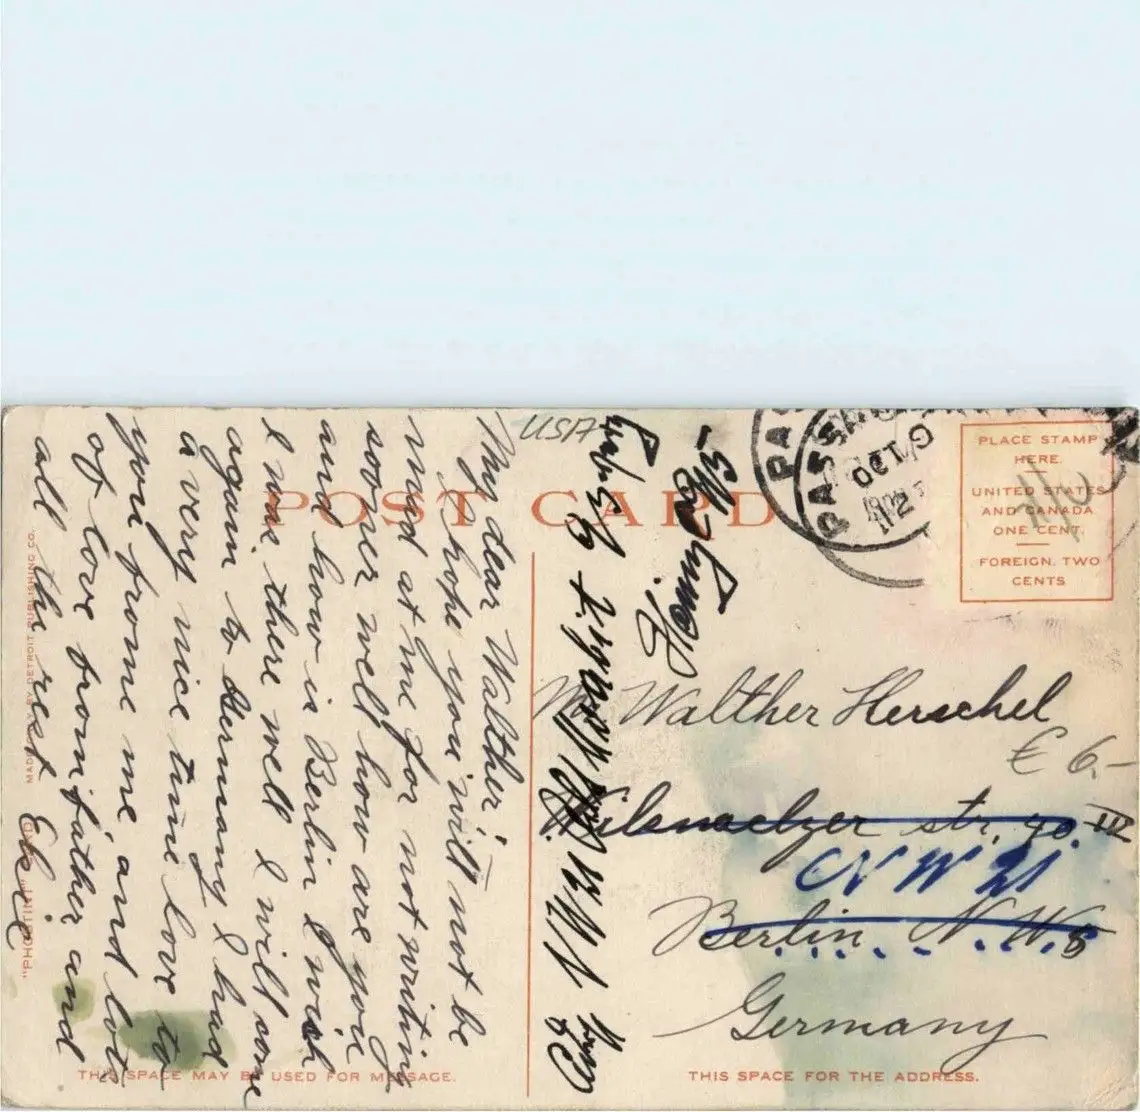 USA
POST CARD
PASSAIC
OCT 19
PLACE STAMP
HERE.
UNITED STATES
AND CANADA
ONE CENT.
FOREIGN, TWO
CENTS
My dear Walther,
I hope you will not be
mad at me for not writing
sooner well how are you
and how is Berlin I wish
I was there well I will come
again to Germany I had
a very nice time love to
you frome me and lot
of love from father and
all the rest Elsie
Mr Walther Herschel
€ 6.-
Wilsnackzer str. 90 III
NW 21
Berlin N.W. 5
Germany
MADE ONLY BY DETROIT PUBLISHING CO.
"PHOSTINT" CARD
THIS SPACE MAY BE USED FOR MESSAGE.
THIS SPACE FOR THE ADDRESS.